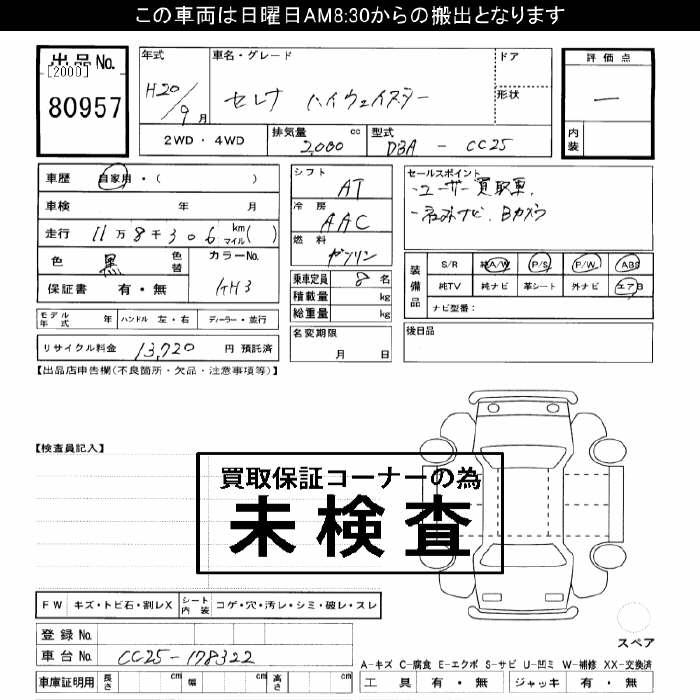 この車両は日曜日AM8:30からの搬出となります
出品No.
[2000]
80957
年式 車名・グレード ドア
H20/9月 セレナ ハイウェイスター 形状
2WD・4WD 排気量 2,000 cc 型式 DBA - CC25
評価点
—
内装
車歴 自家用・( )
車検 年 月
走行 11万8千306 km マイル( )
色 黒 色替 カラーNo. KH3
保証書 有・無
モデル年式 年 ハンドル 左・右 ディーラー・並行
リサイクル料金 13,720 円 預託済
シフト AT
冷房 AAC
燃料 ガソリン
乗車定員 8 名
積載量 kg
総重量 kg
名変期限
月 日
セールスポイント
・ユーザー買取車.
・ナビ. Bカメラ
装備品
S/R 純A/W P/S P/W ABS
純TV 純ナビ 革シート 外ナビ エアB
ナビ型番:
後日品
【出品店申告欄(不良箇所・欠品・注意事項等)】
【検査員記入】
買取保証コーナーの為
未検査
FW キズ・トビ石・割レX シート内装 コゲ・穴・汚レ・シミ・破レ・スレ
登録No.
車台No. CC25-178322
車庫証明用 長さ cm 幅 cm 高さ cm
スペア
A-キズ C-腐食 E-エクボ S-サビ U-凹ミ W-補修 XX-交換済
工具 有・無 ジャッキ 有・無